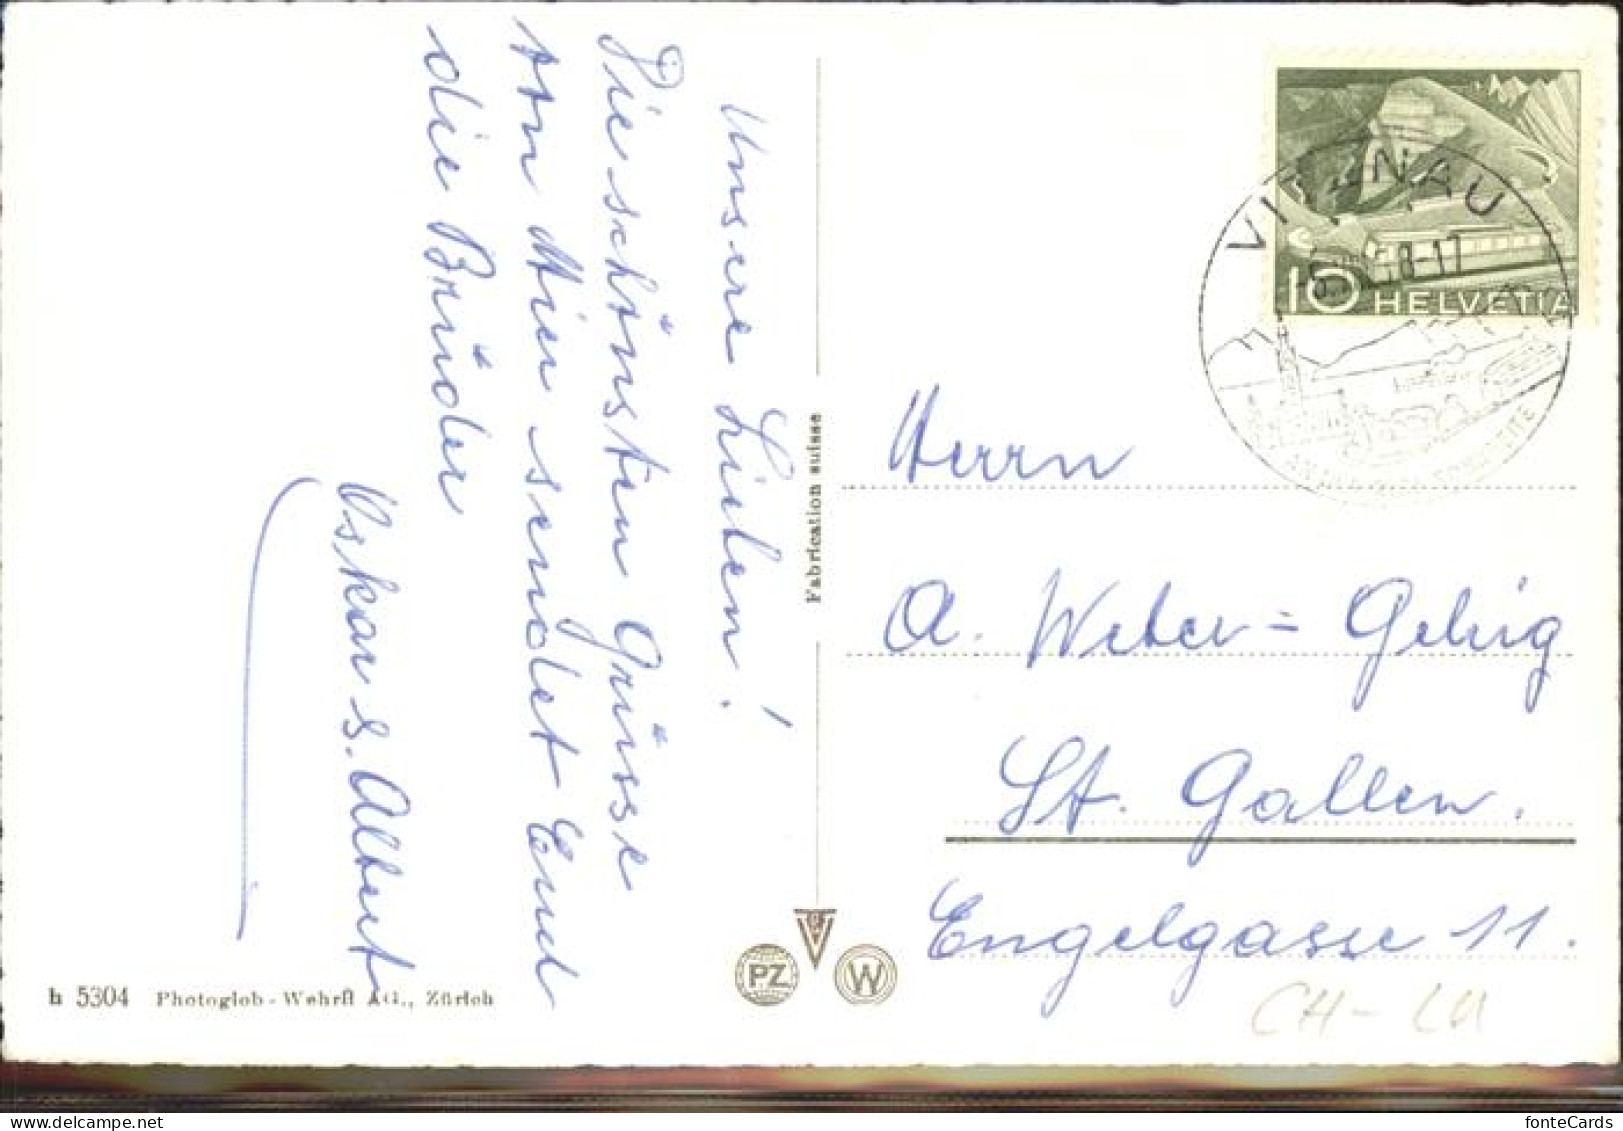 Unsere Lieben!
Die schönsten Grüsse
von Hier sendet Euch
die Brüder
Oskar & Albert
Fabrication suisse
h 5304 Photoglob-Wehrli AG., Zürich
PZ
W
10 HELVETIA
VITZNAU
8-17
Herrn
A. Weber=Gehrig
St. Gallen.
Engelgasse 11.
CH-LU
fonteCards